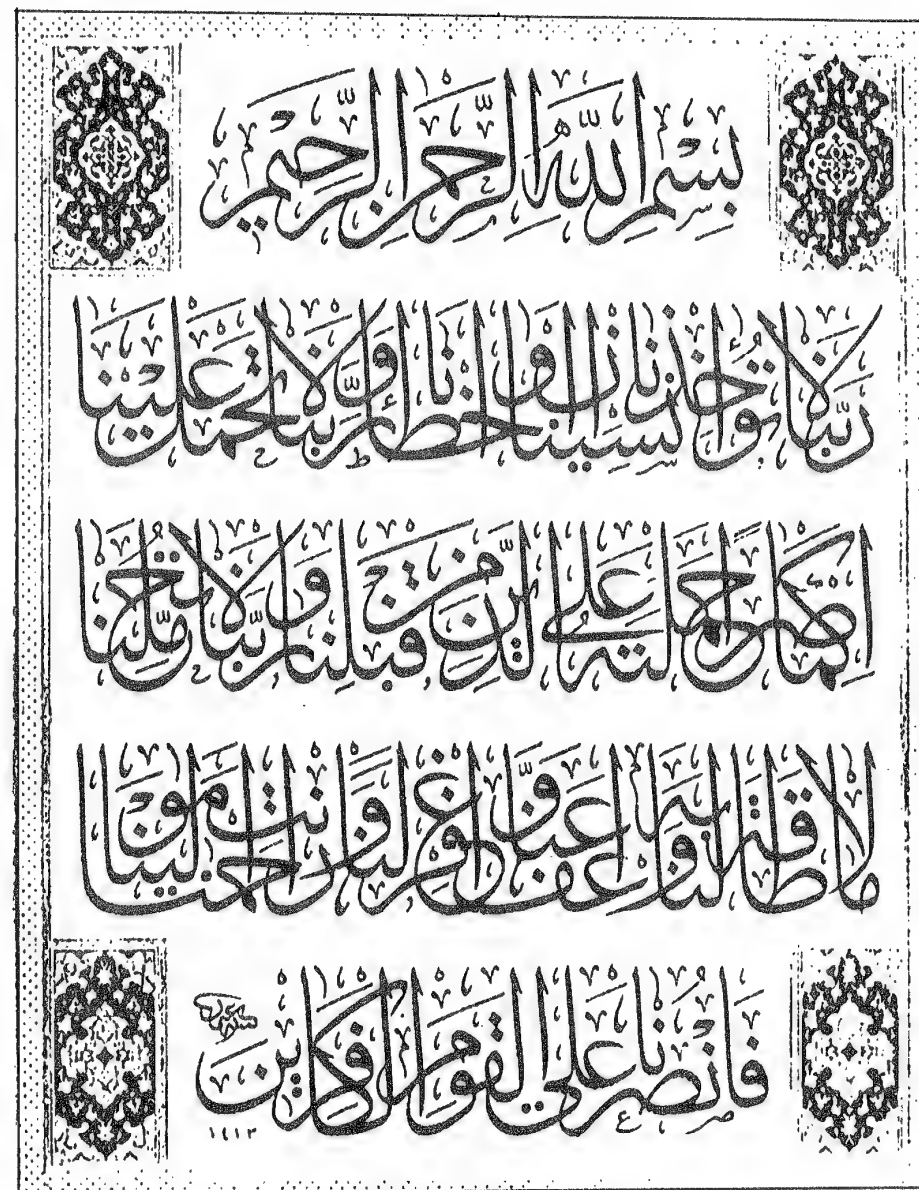 بِسْمِ اللَّهِ الرَّحْمَنِ الرَّحِيمِ
رَبَّنَا لَا تُؤَاخِذْنَا إِنْ نَسِينَا أَوْ أَخْطَأْنَا رَبَّنَا وَلَا تَحْمِلْ عَلَيْنَا
إِصْرًا كَمَا حَمَلْتَهُ عَلَى الَّذِينَ مِنْ قَبْلِنَا رَبَّنَا وَلَا تُحَمِّلْنَا
مَا لَا طَاقَةَ لَنَا بِهِ وَاعْفُ عَنَّا وَاغْفِرْ لَنَا وَارْحَمْنَا أَنْتَ مَوْلَانَا
فَانْصُرْنَا عَلَى الْقَوْمِ الْكَافِرِينَ
١٤١٣